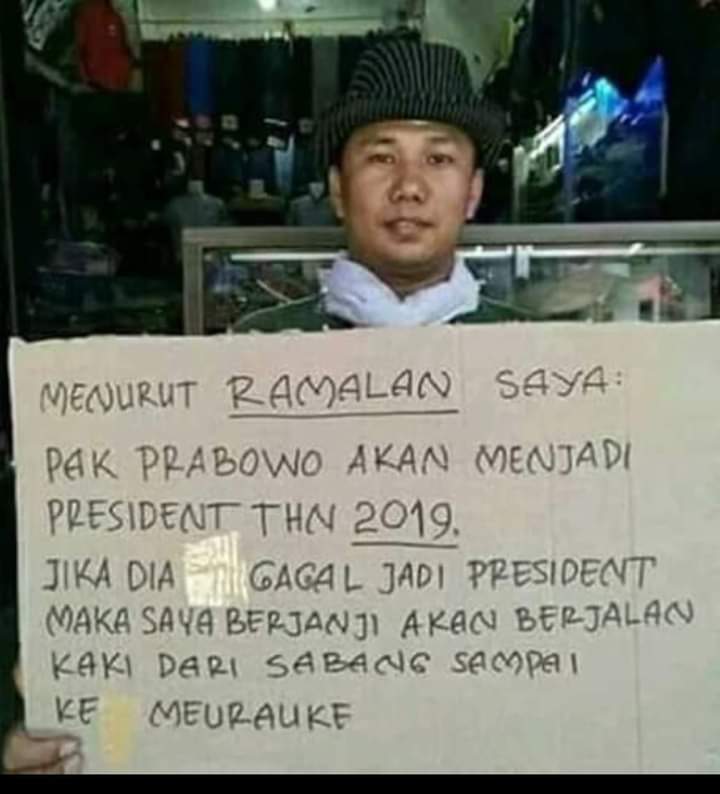 MENURUT RAMALAN SAYA:
PAK PRABOWO AKAN MENJADI
PRESIDENT THN 2019.
JIKA DIA GAGAL JADI PRESIDENT
MAKA SAYA BERJANJI AKAN BERJALAN
KAKI DARI SABANG SAMPAI
KE MEURAUKE